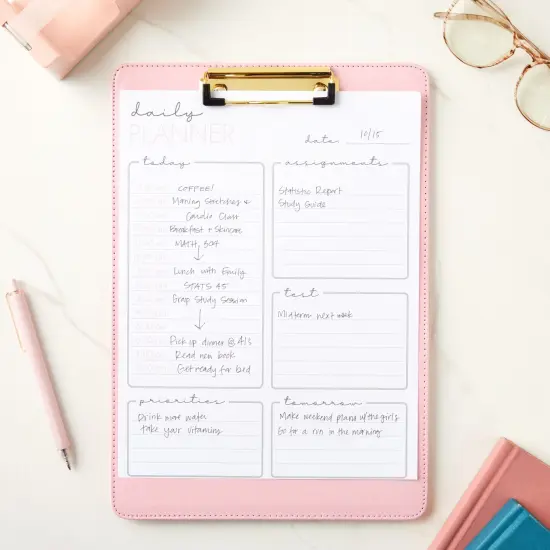 daily
PLANNER
date: 10/15
today
COFFEE!
Morning Stretches &
Cardio Class
Breakfast + Skincare
MATH, 504
Lunch with Emily
STATS 45
Group Study Session
Pick up dinner @
Read new book
Get ready for bed
assignments
Statistic Report
Study Guide
test
Midterm next week
priorities
Drink more water
take your vitamins
tomorrow
Make weekend plans w/the girls
Go for a run in the morning